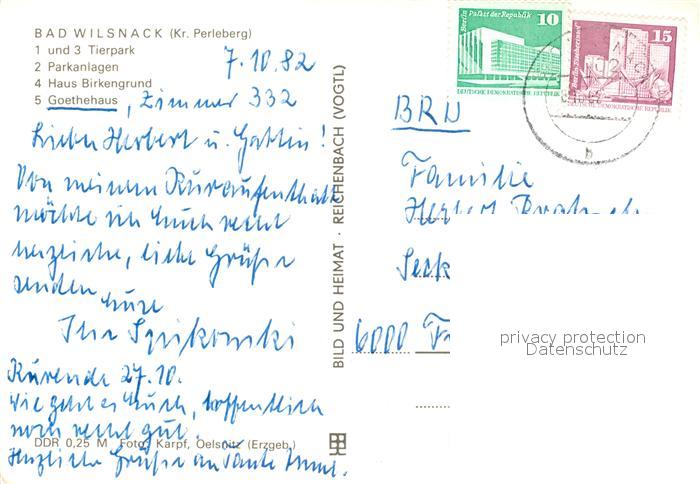 BAD WILSNACK (Kr. Perleberg)
1 und 3 Tierpark
2 Parkanlagen
4 Haus Birkengrund
5 Goethehaus, Zimmer 332
7.10.82
Lieber Herbert u. Gattin!
Von meinem Kuraufenthalt
möchte ich Euch recht
herzliche, liebe Grüße
senden
Eure
Kurende 27.10.
Wie geht es Euch, hoffentlich
noch recht gut.
Herzliche Grüße an Tante
DDR 0,25 M Foto: Karpf, Oelsnitz (Erzgeb.)
BILD UND HEIMAT · REICHENBACH (VOGTL)
Berlin Palast der Republik
10
DEUTSCHE DEMOKRATISCHE REPUBLIK
Berlin-Fischerinsel
15
DEUTSCHE DEMOKRATISCHE REPUBLIK
b
BRD
Familie
6000
privacy protection
Datenschutz